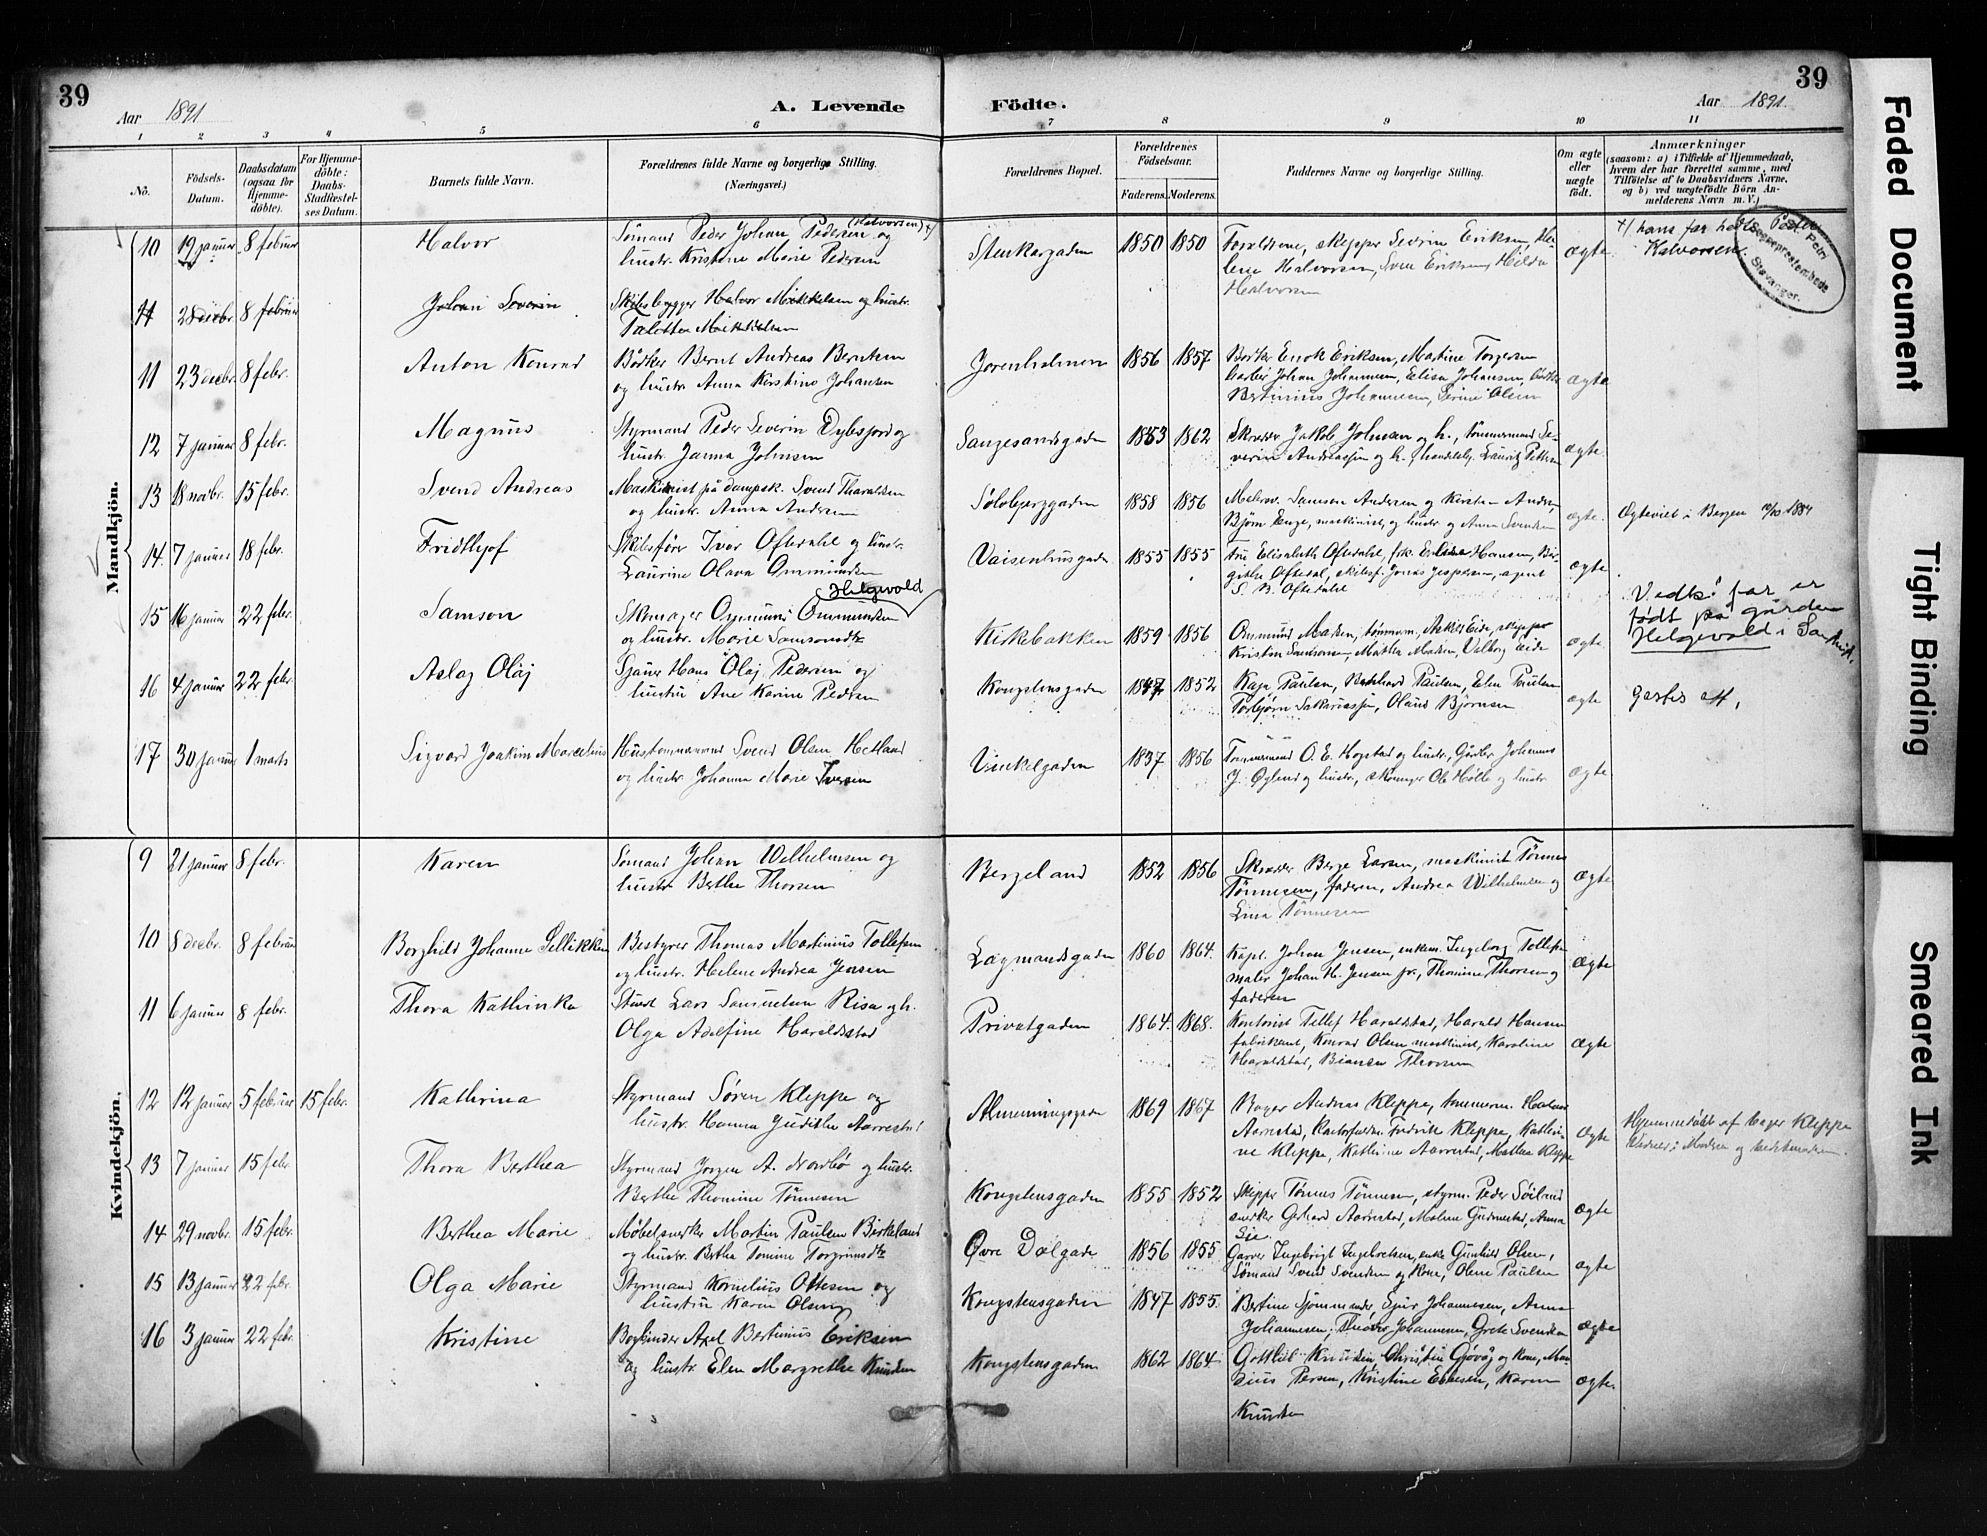 39
Aar 1891
A. Levende Födte.
Aar 1891.
39
1 2 3 4 5 6 7 8 9 10 11
No.
Födsels-Datum.
Daabsdatum (ogsaa for Hjemme-döbte).
For Hjemme-döbte: Daabs-Stadfæstel-ses Datum.
Barnets fulde Navn.
Forældrenes fulde Navne og borgerlige Stilling. (Næringsvei.)
Forældrenes Bopæl.
Forældrenes Födselsaar.
Faderens. Moderens.
Faddernes Navne og borgerlige Stilling.
Om ægte eller uægte födt.
Anmærkninger
(saasom: a) i Tilfælde af Hjemmedaab, hvem der har forrettet samme, med Tilföielse af to Daabsvidners Navne, og b) ved uægtefödte Börn An-melderens Navn m. V.)
Mandkjön.
10 19 januar 8 februar Halvor Sømand Peder Johan Pedersen (Halvorsen) +) og
hustr. Kristine Marie Pedersen
Stenkargaden 1850 1850 Forældrene, skipper Severin Eriksen, He-
lene Halvorsen, Sven Eriksen, Hilda
Halvorsen
ægte +) hans far hed Peder
Halvorsen.
St. Petri Sogneprestembede Stavanger.
11 28 decbr. 8 februar Johan Severin Skibsbygger Halvor Mikkelsen og hustr.
Talette Mikkelsen
11 23 decbr. 8 febr. Anton Konrad Bödker Bernt Andreas Berntsen
og hustr. Anna Kirstine Johansen
Jorenholmen 1856 1857 Bödker Enok Eriksen, Martine Torgersen
barber Johan Johannesen, Elisa Johansen,
Bertinius Johannesen, Serine Olsen
ægte
12 7 januar 8 febr. Magnus Styrmand Peder Severin Dybsjord og
hustr. Janna Johnsen
Sangesandsgaden 1853 1862 Skræder Jakob Johnsen og h., tømmermand Se-
verin Andreassen og h., handelsb. Lauritz Pettersen
ægte.
13 18 novbr. 15 febr. Svend Andreas Maskinist på dampsk. Svend Tharaldsen
og hustr. Anna Andersen
Sølvbergsgaden 1858 1856 Samson Andersen og Kirsten Anders.,
Bjørn Enge, maskinist, og hustr. og Anna Svendsen
ægte. Ægteviet i Bergen 1884
14. 7 januar 18 febr. Fridthjof Skibsfører Ivar Oftedahl og hustr.
Laurine Olava Ommundsen
Vaisenhusgaden 1855 1855 Fru Elisabeth Oftedahl, frk. Eline Hansen, Bir-
githe Oftedal, skibsf. Jonas Jespersen, agent
S. B. Oftedahl
ægte
15 16 januar 22 febr. Samson Skomager Ommund Ommundsen (Helgevold)
og hustr. Marie Samsonsdtr.
Kirkebakken 1859 1856 Ommund Madsen, tømmerm. Askild Eide, skipper
Kristen Samsonsen, Mathea Madsen, Valborg Eide
ægte Vedk! far er
født på gården
Helgevold i Sandnes.
16 4 januar 22 febr. Aslag Olaj Sjauer Hans Olaj Pedersen og
hustru Ane Karine Pedersen
Kongstensgaden 1847 1852 Kaja Paulsen, Bernhard Paulsen, Elen Paulsen
Torbjørn Sakariassen, Olaus Bjørnsen
ægte
17 30 januar 1 marts Sigvard Joakim Marcelius Hustømmermand Svend Olsen Hetland
og hustr. Johanne Marie Iversen
Vinkelgaden 1837 1856 Tømmermand O. E. Hogstad og hustr., Gårdbr. Johannes
J. Øglend og hustr., skomager Ole Holte og hustr.
ægte
Kvindekjön.
9 21 januar 8 febr. Karen Sømand Johan Wilhelmsen og
hustr. Berthe Thorsen
Bergeland 1852 1856 Skræder Berge Larsen, maskinist Tønnes
Tønnesen, faderen, Andrea Wilhelmsen og
Lina Tønnesen
ægte
10 8 decbr. 8 februar Borghild Johanne Sellikken Bestyrer Thomas Martinius Tollefsen
og hustr. Helene Andrea Jensen
Lagmandsgaden 1860 1864. Kapt. Johan Jensen, enkem. Ingeborg Tollefsen
maler Johan H. Jensen jr., Thomine Thorsen og
faderen
ægte
11 6 januar 8 febr. Thora Kathinka Stuert Lars Samuelsen Risa og h.
Olga Adelfine Haraldstad
Privatgaden 1864. 1868. Kontorist Tellef Haraldstad, Harald Hansen
fabrikant, Konrad Olsen maskinist, Karoline
Haraldstad, Bianca Thorsen
ægte
12 12 januar 5 februar 15 febr. Kathrina Styrmand Søren Kleppe og
hustr. Hanna Judithe Aarrestad
Almenningsgaden 1869 1867 Bager Andreas Kleppe, tømmerm. Halvor
Aarrestad, Fredrik Kleppe, Kathri-
ne Kleppe, Kathrine Aarrestad, Mathea Kleppe
ægte Hjemmedøbt af bager Kleppe
13 7 januar 15 febr. Thora Berthea Styrmand Jørgen A. Nordbø og hustr.
Berthe Thomine Tönnesen
Kongstensgaden 1855 1852 Skipper Tønnes Tønnesen, styrm. Peder Söiland
snedker Gerhard Aarrestad, Malene Gudmestad, Anna
Lie.
ægte
14 29 novbr. 15 febr. Berthea Marie Møbelsnedker Martin Paulsen Birkeland
og hustr. Bertha Tomine Torgrimsdtr.
Øvre Dalgade 1856 1855 Garver Ingebrigt Ingebretsen, enke Gunhild Olsen,
Sømand Svend Svendsen og kone, Olene Paulsen
ægte
15 13 januar 22 febr. Olga Marie Styrmand Kornelius Ottesen og
hustru Karen Olsen
Kongstensgaden 1847 1855. Bertine Sjømmesdatter, Sjur Johannesen, Anna
Johannesen, Theodor Johannesen, Grete Svendsen
ægte
16 3 januar 22 febr. Kristine Bogbinder Axel Bertinius Eriksen
og hustr. Elen Margrethe Knudsen
Kongstensgaden 1862 1864 Gottlieb Knudsen, Christen Gjøvåg og kone, Mar-
sius Persen, Kristine Ebbesen, Karen
Knudsen
ægte.
Faded Document
Tight Binding
Smeared Ink